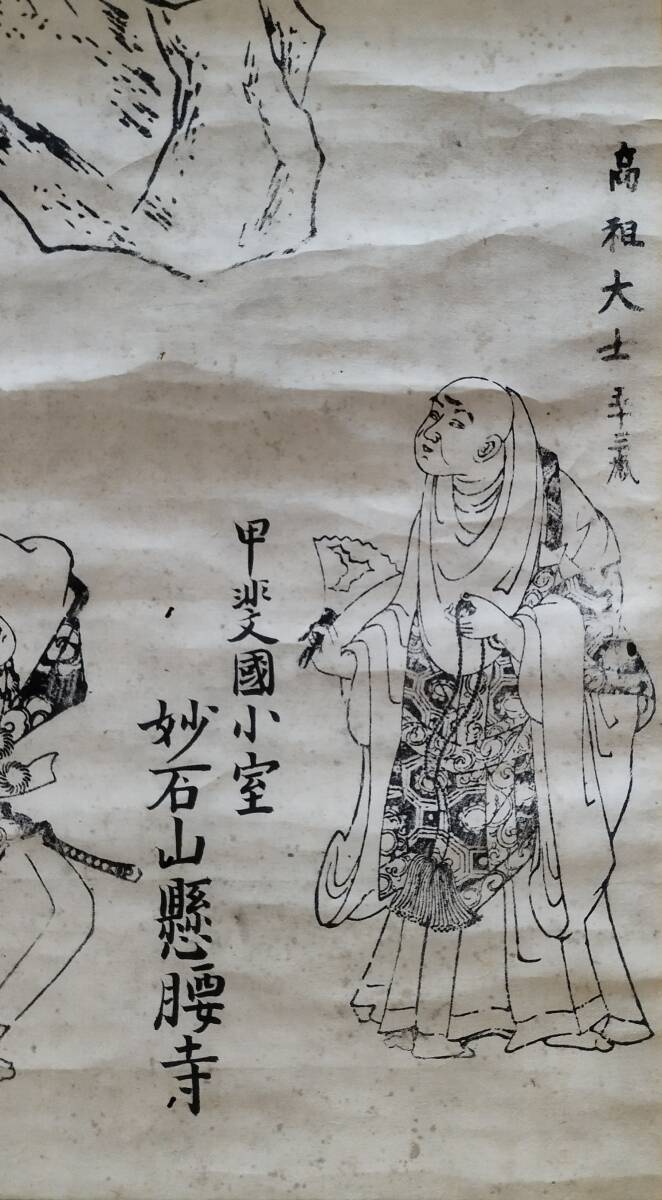 高祖大士 五十三歳
甲斐國小室
妙石山懸腰寺